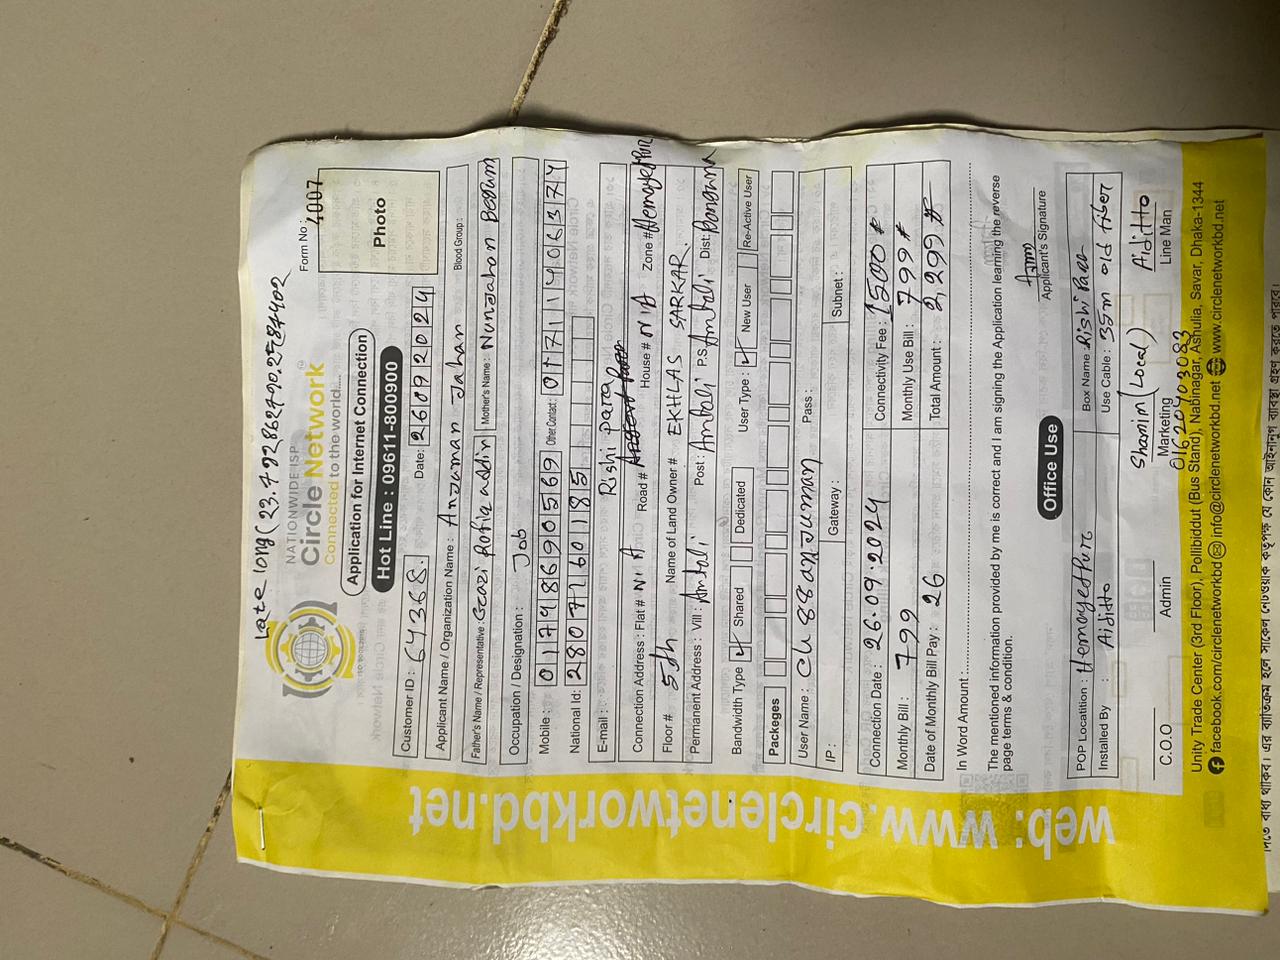 Late long (23.7928627,90.2584402
NATIONWIDE ISP
Circle Network™
Connected to the world....
Form No : 4007
Application for Internet Connection
Hot Line : 09611-800900
Photo
Customer ID : 64368. Date: 26092024
Applicant Name / Organization Name : Anjuman Jahan Blood Group:
Father's Name / Representative : Gazi Rofiq addin Mother's Name: Nunjahan Begum
Occupation / Designation : Job
Mobile : 01748690569 Other Contact : 01711406374
National Id: 2807260185
E-mail : Rishi para
Connection Address : Flat # N/A Road # House # N/A Zone # Hemayetpur
Floor # 5th Name of Land Owner # EKHLAS SARKAR.
Permanent Address : Vill : Amtali Post : Amtali P.S: Amtali Dist: Banguna
Bandwidth Type Shared Dedicated User Type : New User Re-Active User
Packeges
User Name : Ch 88 anjuman Pass :
IP : Gateway : Subnet :
Connection Date : 26.09.2024 Connectivity Fee : 1500
Monthly Bill : 799 Monthly Use Bill : 799
Date of Monthly Bill Pay : 26 Total Amount : 2,299
In Word Amount :
The mentioned information provided by me is correct and I am signing the Application learning the reverse
page terms & condition.
Applicant's Signature
Office Use
POP Locatition : Hemayethpr Box Name : Rishi Para
Installed By : Aiditto Use Cable : 35m old fiber
Shamim (Local) Aiditto
C.O.O Admin Marketing Line Man
01620703083
Unity Trade Center (3rd Floor), Pollibiddut (Bus Stand), Nabinagar, Ashulia, Savar, Dhaka-1344
facebook.com/circlenetworkbd info@circlenetworkbd.net www.circlenetworkbd.net
web: www.circlenetworkbd.net
দিতে বাধ্য থাকিব। এর ব্যতিক্রম হলে সার্কেল নেটওয়ার্ক কর্তৃপক্ষ যে কোন আইনানুগ ব্যবস্থা গ্রহণ করতে পারবে।